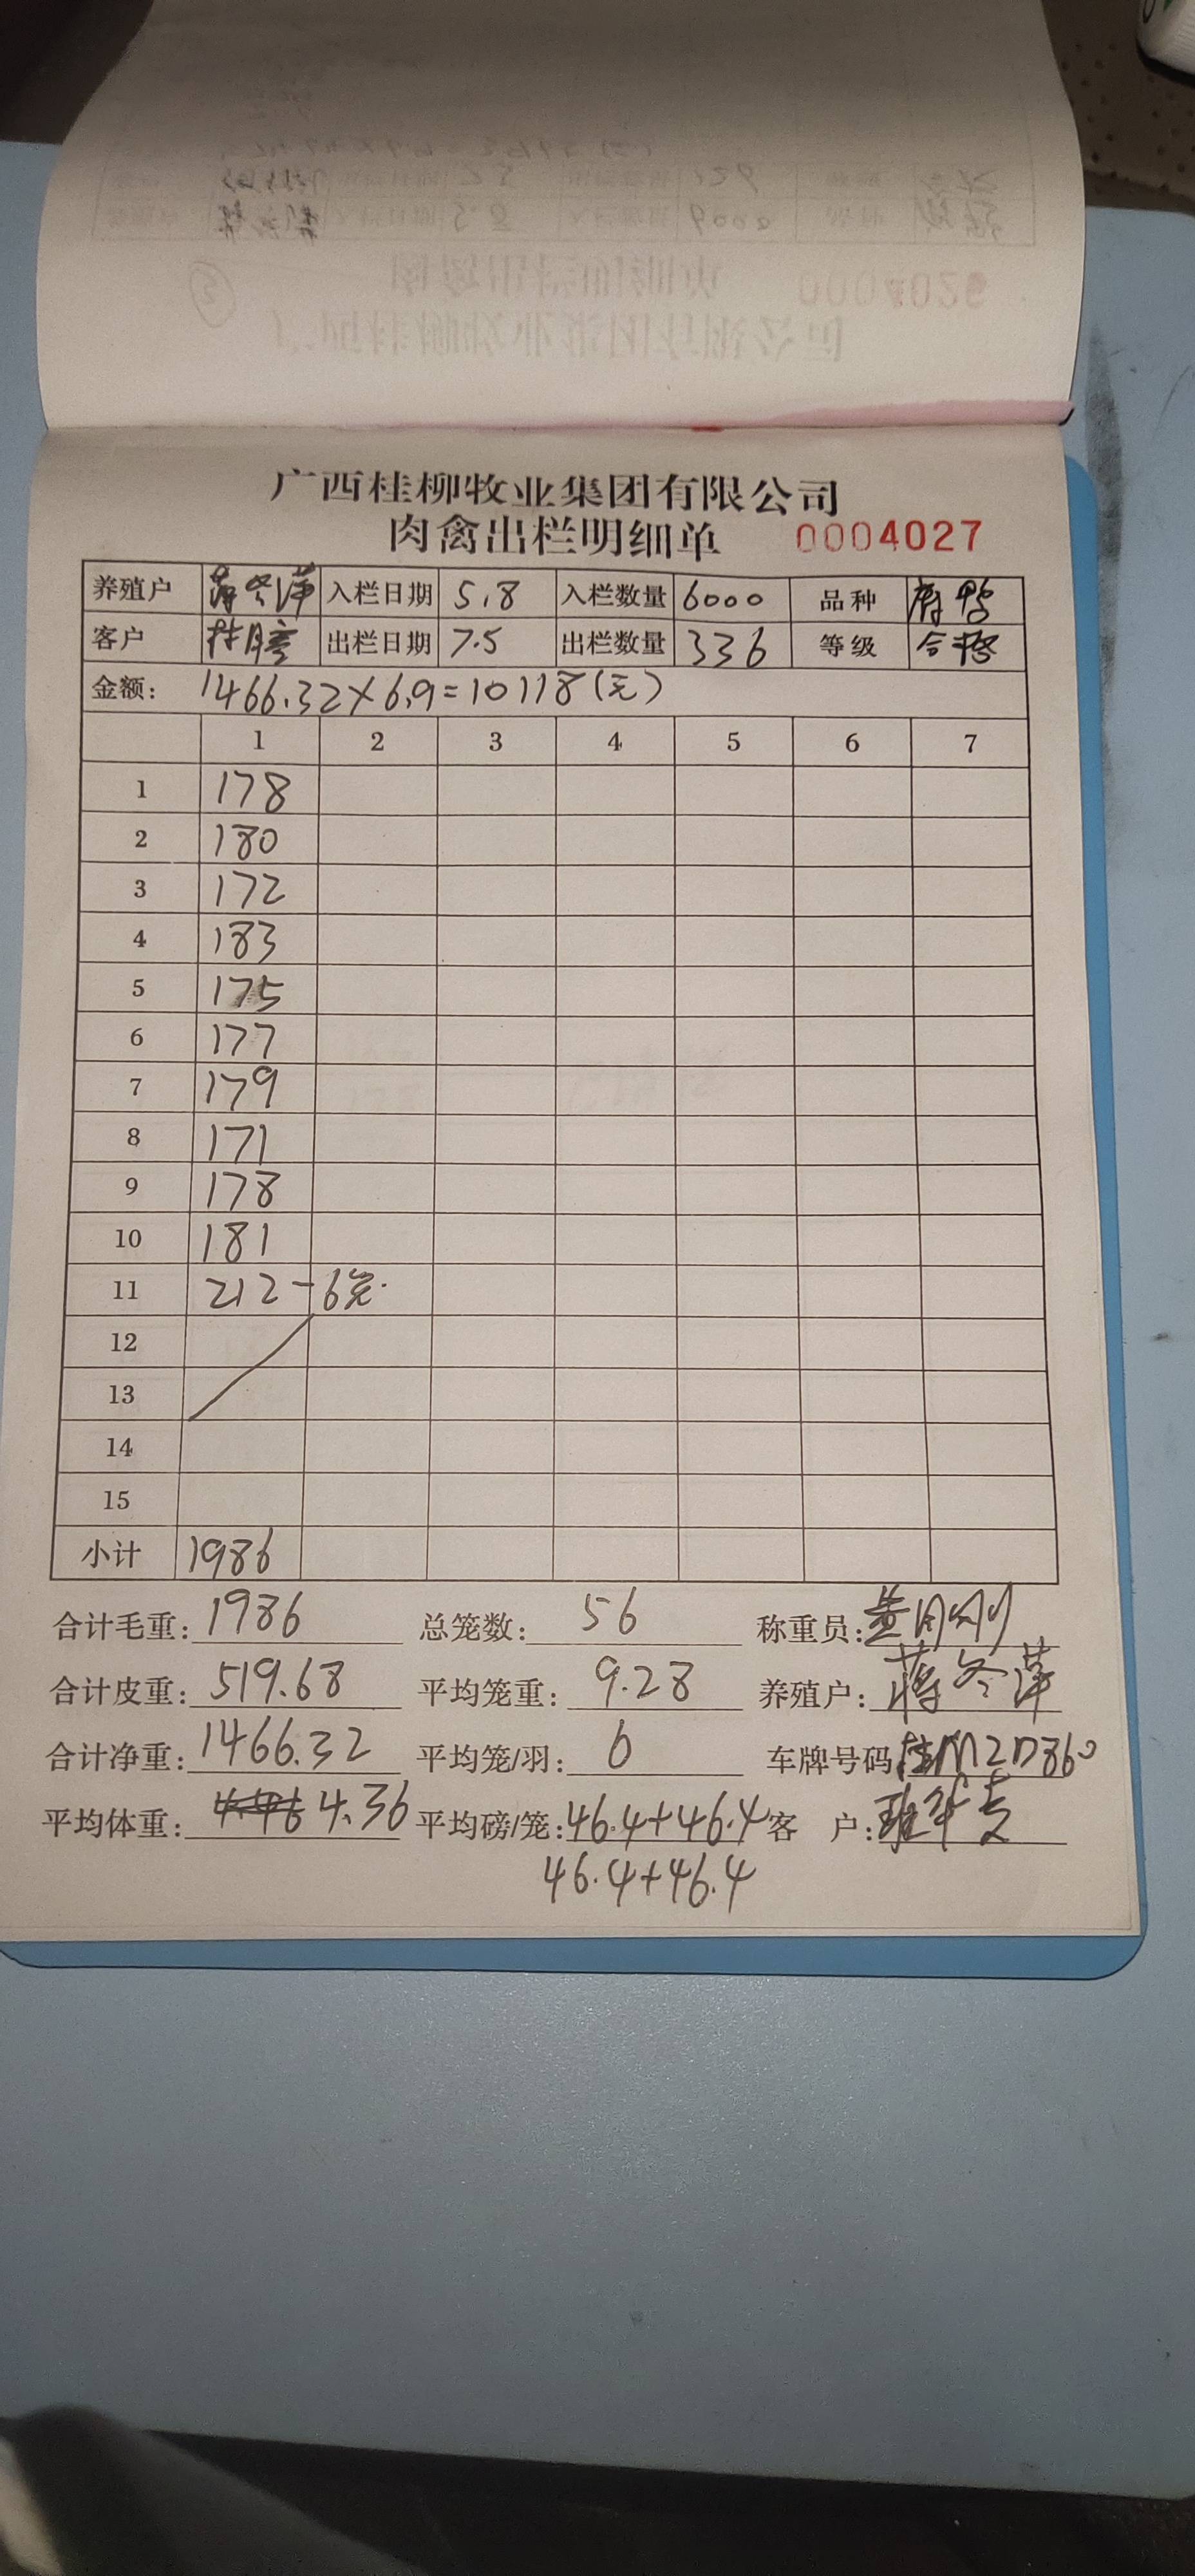 广西桂柳牧业集团有限公司
肉禽出栏明细单 0004027
养殖户 蒋冬萍 入栏日期 5.8 入栏数量 6000 品种 麻鸭
客户 出栏日期 7.5 出栏数量 336 等级 合格
金额: 1466.32×6.9=10118(元)
1 2 3 4 5 6 7
1 178
2 180
3 172
4 183
5 175
6 177
7 179
8 171
9 178
10 181
11 212-6笼.
12
13
14
15
小计 1986
合计毛重: 1986 总笼数: 56 称重员:
合计皮重: 519.68 平均笼重: 9.28 养殖户: 蒋冬萍
合计净重: 1466.32 平均笼/羽: 6 车牌号码 桂M2D860
平均体重: 4.36 平均磅/笼: 46.4+46.4 客 户:
46.4+46.4